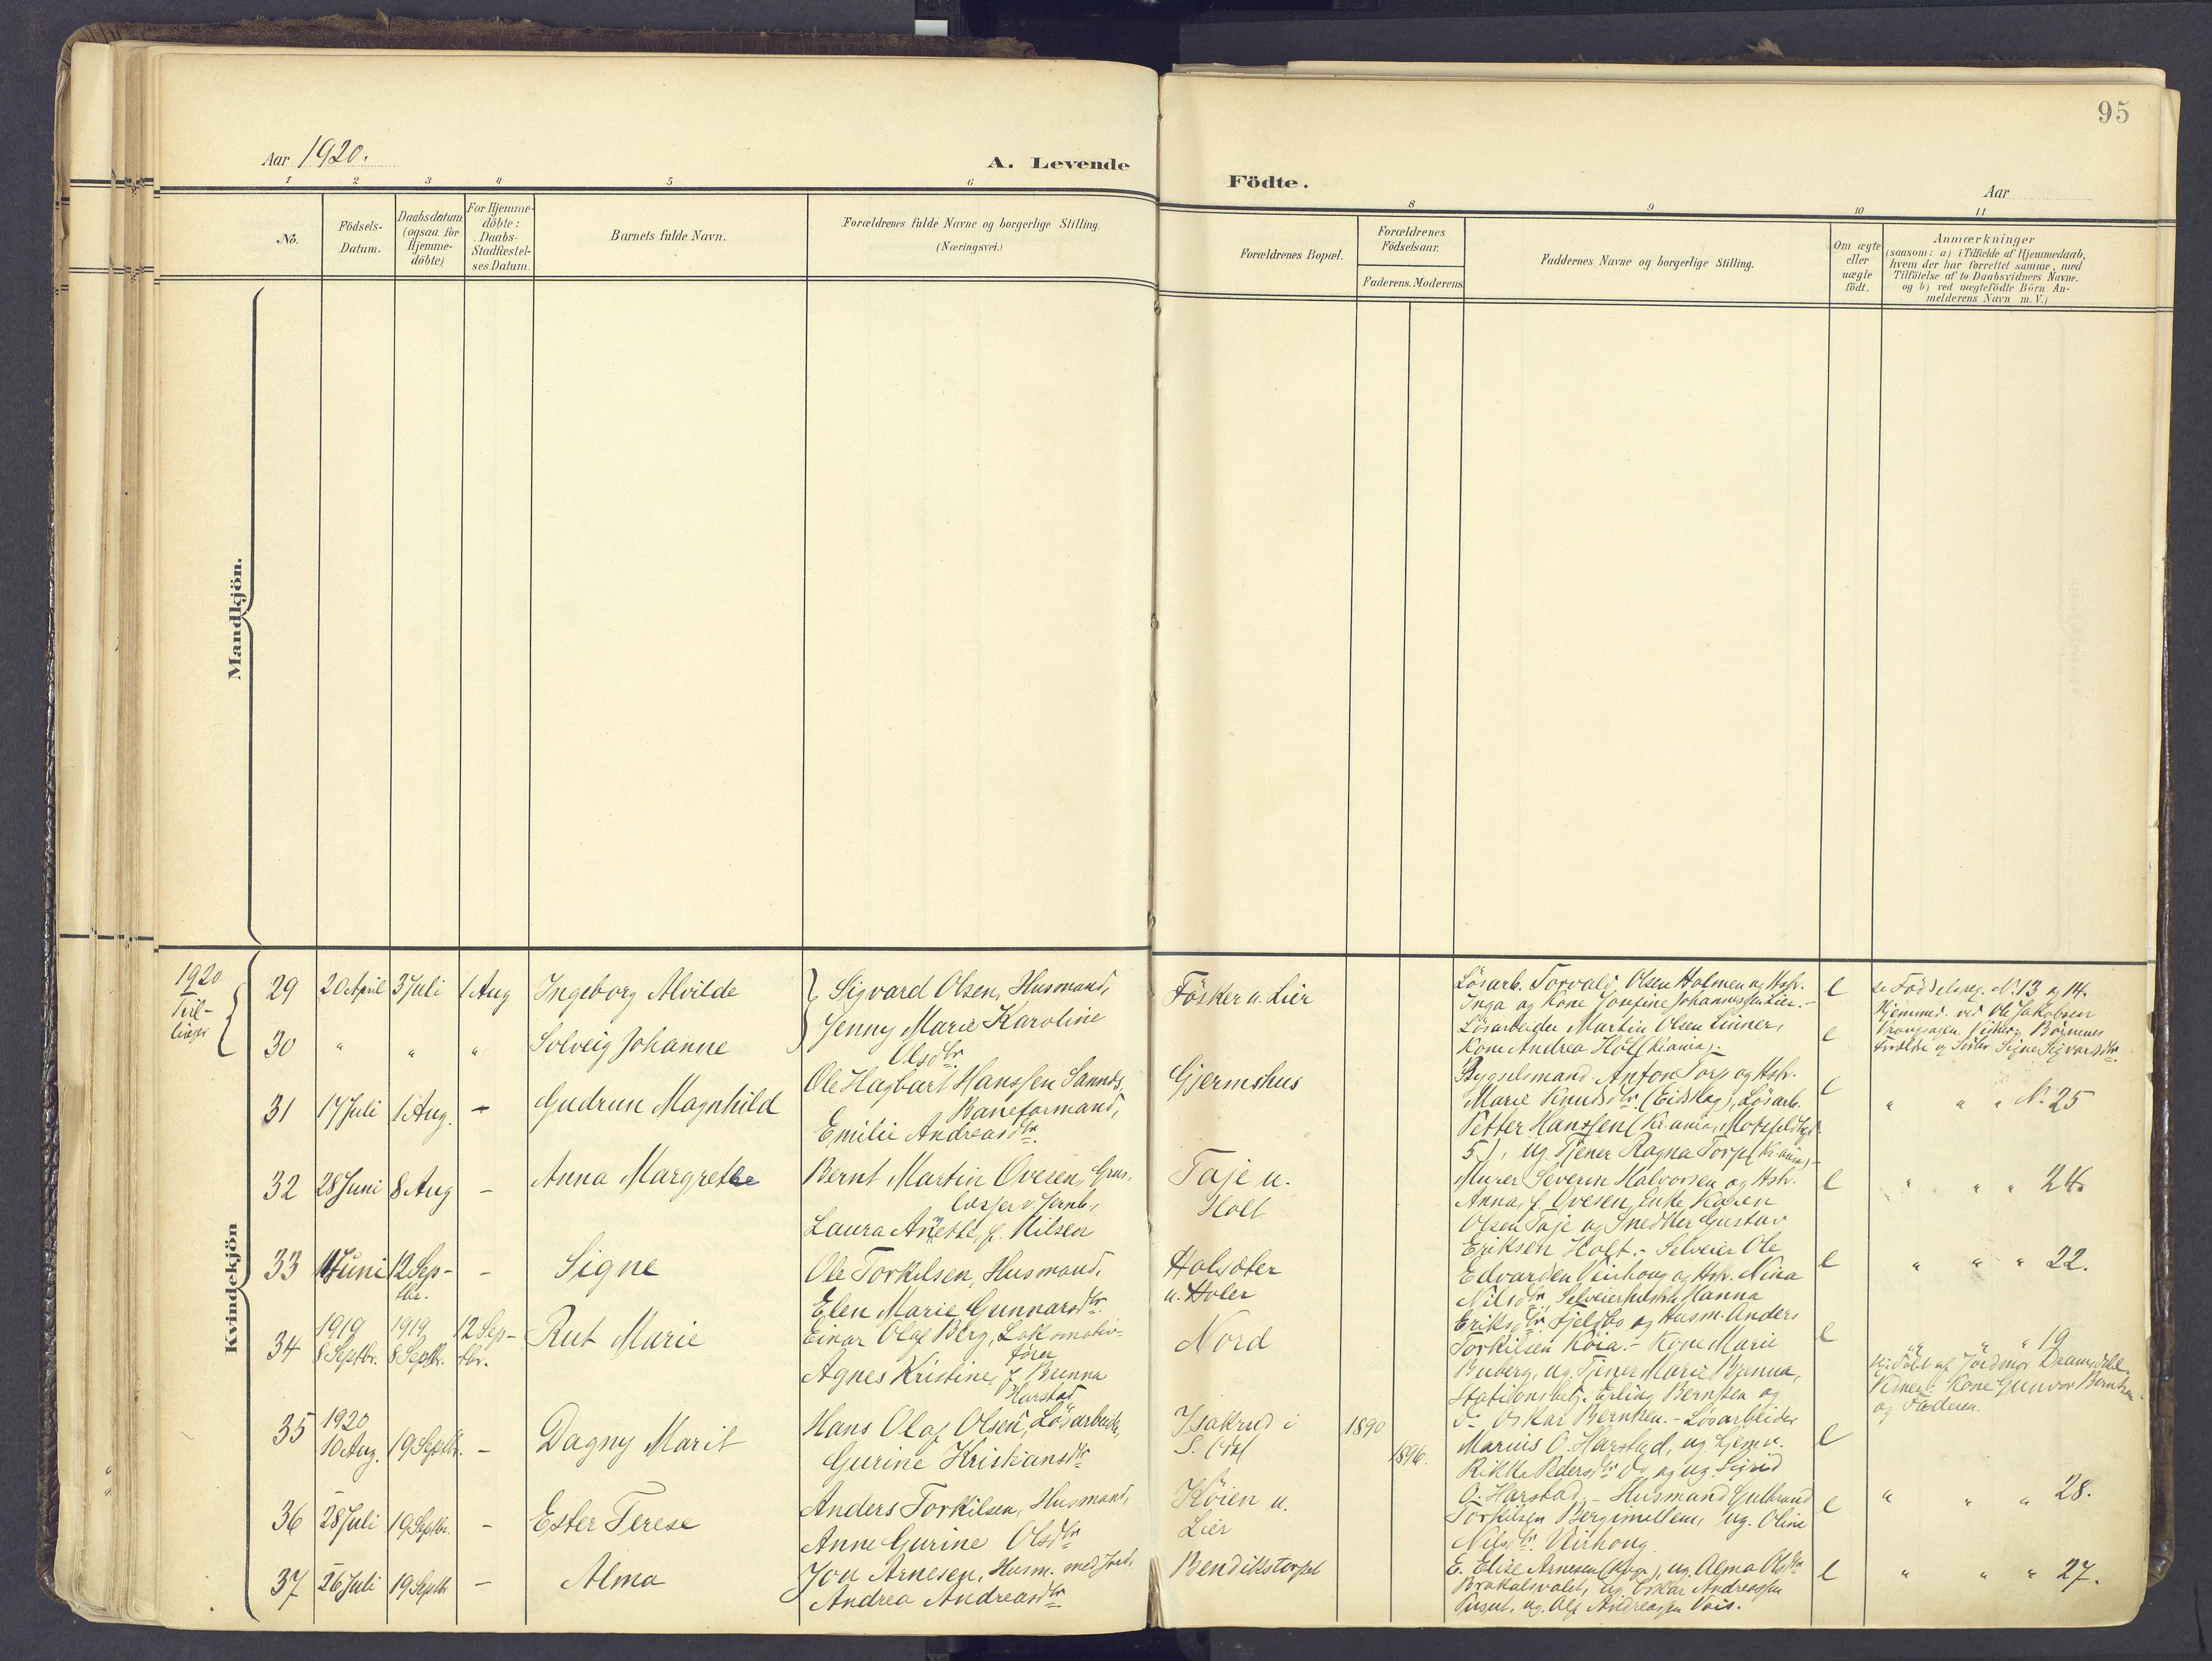 95
Aar 1920.
A. Levende
Födte.
Aar
1 2 3 4 5 6
8 9 10 11
No.
Födsels-
Datum.
Daabsdatum
(ogsaa for
Hjemme-
döbte)
For Hjemme-
döbte:
Daabs-
Stadfæstel-
ses Datum.
Barnets fulde Navn.
Forældrenes fulde Navne og borgerlige Stilling.
(Næringsvei.)
Forældrenes Bopæl.
Forældrenes
Födselsaar.
Faderens. Moderens
Faddernes Navne og borgerlige Stilling.
Om ægte
eller
uægte
födt.
Anmærkninger
(saasom: a) i Tilfælde af Hjemmedaab,
hvem der har forrettet samme, med
Tilføielse af to Daabsvidners Navne.
og b) ved uægtefödte Börn An-
melderens Navn m. V.)
Mandkjön.
Kvindekjön
1920
Tvil-
linger
29 20 April 3 Juli 1 Aug Ingeborg Alvilde
Sigvard Olsen, Husmand,
Jenny Marie Karoline
Olsdtr.
Fösker u. Lier
Lösarb. Torvald Olsen Holmen og Hstr.
Inga og Kone Josefine Johannessen Lier.-
e
se Födselsreg. No. 13 og 14.
30 " " " Solveig Johanne
Lösarbeider Martin Olsen Linner,
Kone Andrea Holt (Kr.ania).-
e
Hjemmed. ved Ole Jakobsen
Börnenes
Forældre og Söster Signe Sigvardsdtr.
31 17 Juli 1 Aug. - Gudrun Magnhild
Ole Hagbart Hanssen Sannes,
Baneformand,
Emilie Andreasdtr.
Gjermshus
Bygselmand Anton Torp og Hstr.
Marie Knudsdtr. (Eidskog), Lösarb.
Petter Hanssen (Kr.ania,
5), ug. Tjener Ragna Torp (Kr.ania)-
e
" " " No. 25
32 28 Juni 8 Aug - Anna Margrethe
Bernt Martin Ovesen, Grus-
losser v. Jernb.,
Laura Anethe, f. Nilsen
Taje u.
Holt
Murer Severin Halvorsen og Hstr.
Anna, f. Ovesen, Enke Karen
Olsen Taje og Snedker Gustav
Eriksen Holt.-
e
" " " 24.
33 11 Juni 12 Sep-
tbr. - Signe
Ole Torkilsen, Husmand,
Elen Marie Gunnarsdtr.
Holsæter
u. Holer
Selveier Ole
Edvardsen Veirhoug og Hstr. Nina
Nilsdtr, Selveierhustru Hanna
Eriksdtr. Fjeldbo og Husm. Anders
Torkilsen Köia.-
e
" " " 22.
34 1919
8 Septbr. 1919
8 Septbr. 12 Sep-
tbr. Rut Marie
Einar Olaf Berg, Lokomotiv-
förer
Agnes Kristine, f. Brenna
Harstad
Nord
Kone Marie
Buberg, ug. Tjener Marie Brenna,
Stationsbetj. Erling Berntsen og
do Oskar Berntsen.-
e
" " " 19
Hj. döbt af Jordmor
Vidner: Kone Gunvor Berntsen
og Faderen.
35 1920
10 Aug. 19 Septbr. - Dagny Marit
Hans Olaf Olsen, Lösarbeider,
Gurine Kristiansdtr.
Isakrud i
S. Odal
1890
1896.
Lösarbeider
Marius O. Harstad, ug. Hjemv.
Rikka Pedersdtr. do og ug. Sigrid
O. Harstad.-
e
36 28 Juli 19 Septbr. - Ester Terese
Anders Torkilsen, Husmand,
Anne Gurine Olsdtr.
Köien u.
Lier
Husmand Gulbrand
Torkilsen Bergimellem, ug. Oline
Nilsdtr. Veirhoug.
e
" " " 28.
37 26 Juli 19 Septbr - Alma
Jon Arnesen, Husm. med Jord,
Andrea Andreasdtr.
Bendikstorpet
E. Elise Arnesen (Kvgr.), ug. Alma Olsdtr.
ug. Oskar Andreassen
ug. Alf Andreassen
e
" " " 27.